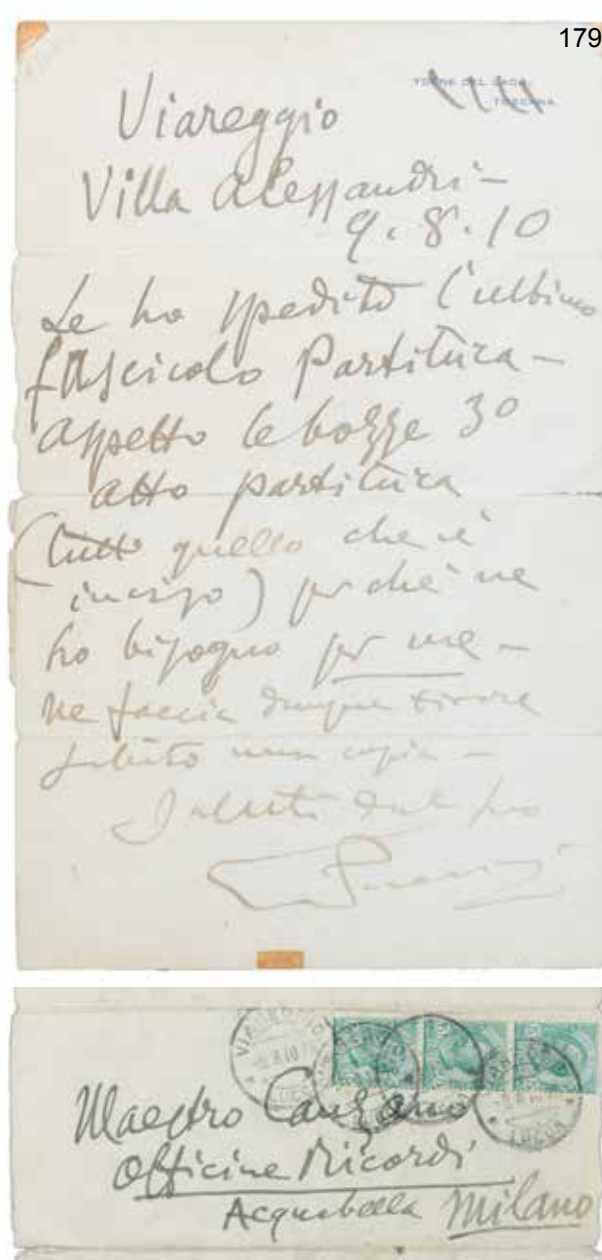 179
TORRE DEL LAGO
TOSCANA
Viareggio
Villa Alessandri –
9.8.10
Le ho spedito l'ultimo
fascicolo Partitura –
aspetto le bozze 3º
atto partitura
(tutto quello che è
inciso) perché ne
ho bisogno per me –
ne faccia dunque tirare
subito una copia –
Saluti dal suo
GPuccini
VIAREGGIO
LUCCA
Maestro
Officine Ricordi
Acquabella Milano